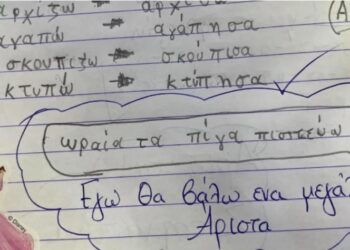 αρχίζω → αρχισα
αγαπώ → αγάπησα
σκουπίζω → σκούπισα
κτυπώ → κτύπησα
ωραία τα πίγα πιστεύω
Εγώ θα βάλω ενα μεγά
Αριστα
© Disney